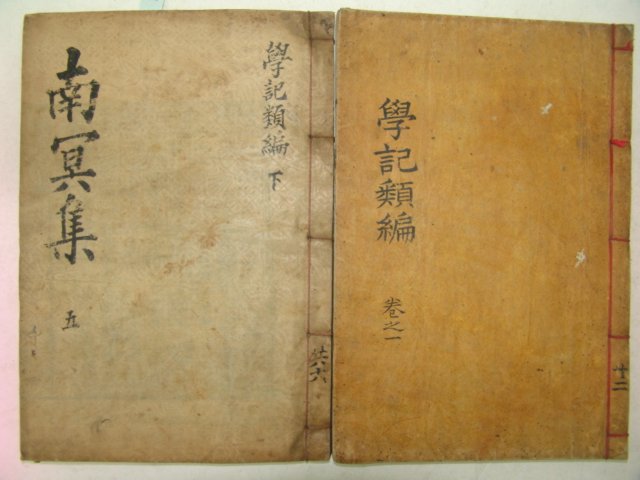 南冥集
五
學記類編
下
共六
學記類編
卷之一
共二